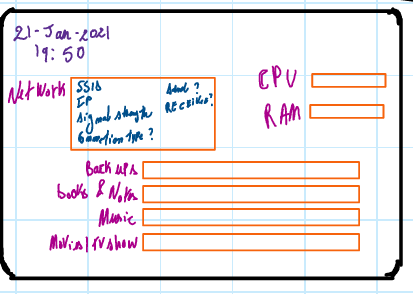 21-Jan-2021
19:50
CPU
RAM
Networks
SSID
IP
Signal strength
Connection type?
Send?
RECEIVED?
Backups
books & Notes
Music
Movies/TV show